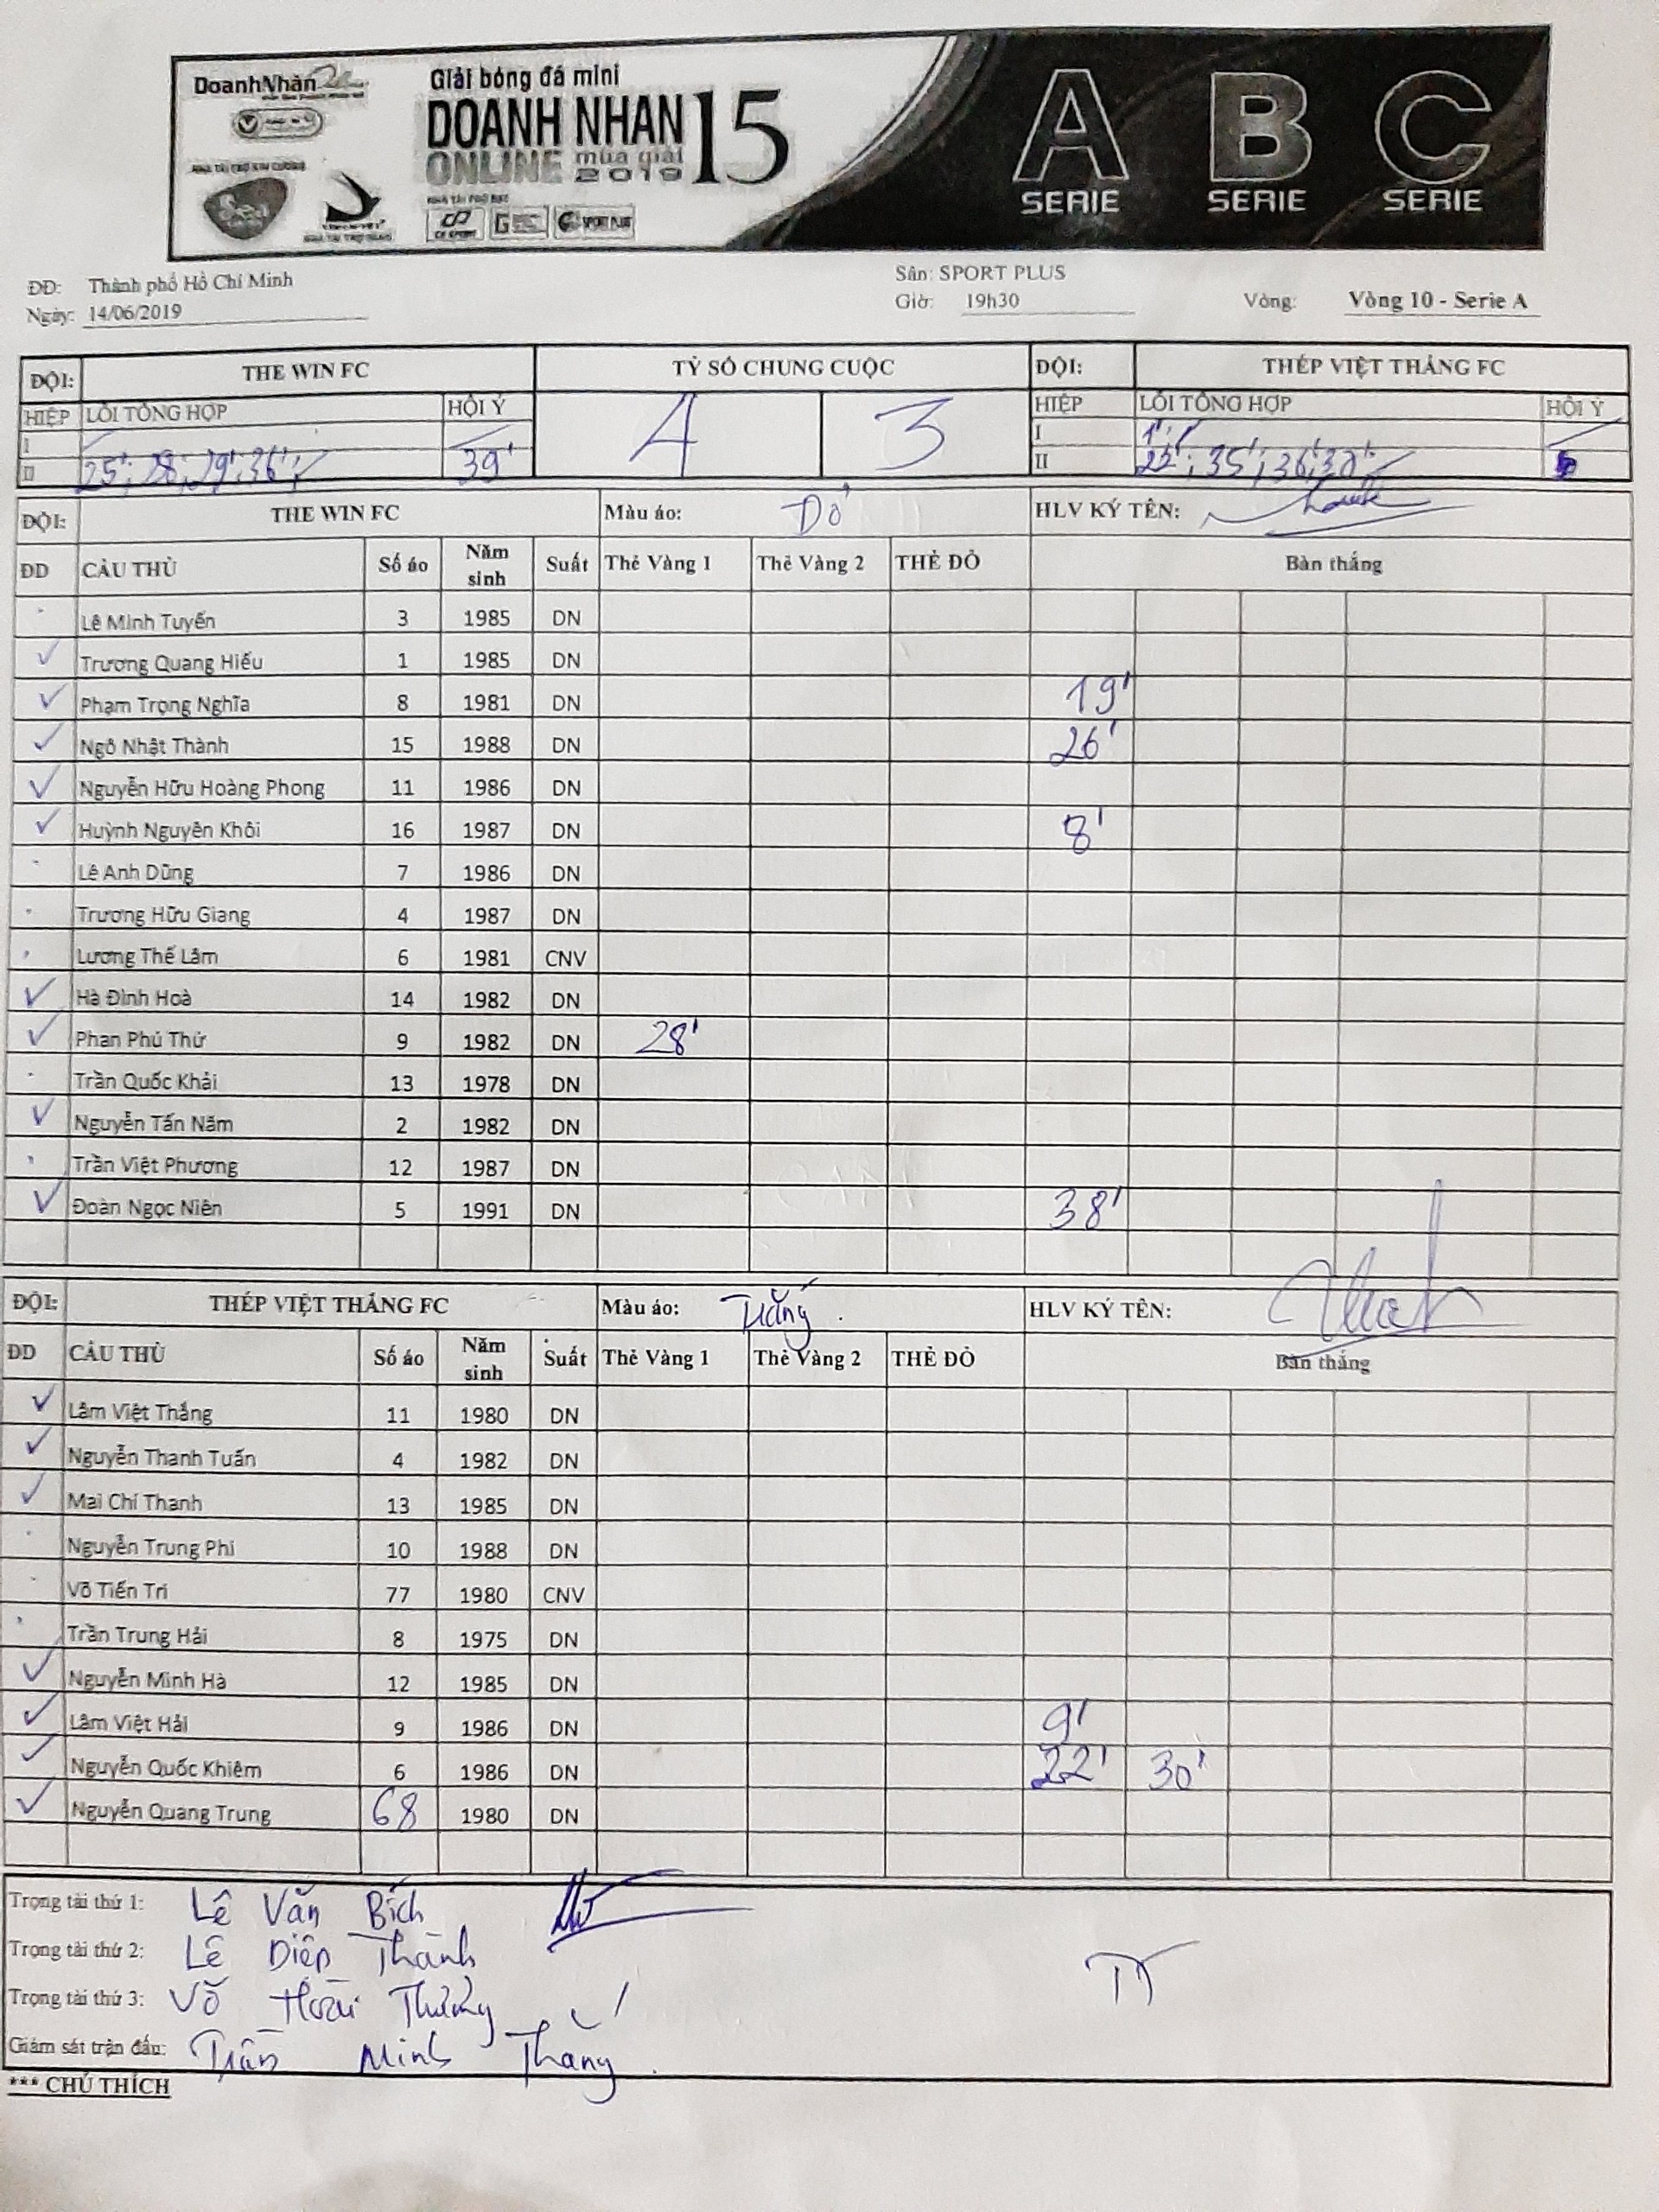 DoanhNhân
Giải bóng đá mini
DOANH NHAN 15
ONLINE mùa giải 2019
NHÀ TÀI TRỢ KIM CƯƠNG
NHÀ TÀI TRỢ BẠC
SPORT PLUS
A SERIE B SERIE C SERIE
ĐĐ: Thành phố Hồ Chí Minh Sân: SPORT PLUS
Ngày: 14/06/2019 Giờ: 19h30 Vòng: Vòng 10 - Serie A
ĐỘI: THE WIN FC TỶ SỐ CHUNG CUỘC ĐỘI: THÉP VIỆT THẮNG FC
HIỆP LỖI TỔNG HỢP HỘI Ý 4 3 HIỆP LỖI TỔNG HỢP HỘI Ý
I I 1';
II 25'; 28'; 29'; 36'; 39' II 35'; 36';
ĐỘI: THE WIN FC Màu áo: Đỏ HLV KÝ TÊN:
ĐD CẦU THỦ Số áo Năm sinh Suất Thẻ Vàng 1 Thẻ Vàng 2 THẺ ĐỎ Bàn thắng
Lê Minh Tuyến 3 1985 DN
Trương Quang Hiếu 1 1985 DN
Phạm Trọng Nghĩa 8 1981 DN 19'
Ngô Nhật Thành 15 1988 DN 26'
Nguyễn Hữu Hoàng Phong 11 1986 DN
Huỳnh Nguyên Khôi 16 1987 DN 8'
Lê Anh Dũng 7 1986 DN
Trương Hữu Giang 4 1987 DN
Lương Thế Lâm 6 1981 CNV
Hà Đình Hoà 14 1982 DN
Phan Phú Thứ 9 1982 DN 28'
Trần Quốc Khải 13 1978 DN
Nguyễn Tấn Năm 2 1982 DN
Trần Việt Phương 12 1987 DN
Đoàn Ngọc Niên 5 1991 DN 38'
ĐỘI: THÉP VIỆT THẮNG FC Màu áo: Trắng HLV KÝ TÊN:
ĐD CẦU THỦ Số áo Năm sinh Suất Thẻ Vàng 1 Thẻ Vàng 2 THẺ ĐỎ Bàn thắng
Lâm Việt Thắng 11 1980 DN
Nguyễn Thanh Tuấn 4 1982 DN
Mai Chí Thanh 13 1985 DN
Nguyễn Trung Phi 10 1988 DN
Võ Tiến Trí 77 1980 CNV
Trần Trung Hải 8 1975 DN
Nguyễn Minh Hà 12 1985 DN
Lâm Việt Hải 9 1986 DN 9'
Nguyễn Quốc Khiêm 6 1986 DN 22' 30'
Nguyễn Quang Trung 68 1980 DN
Trọng tài thứ 1: Lê Văn Bích
Trọng tài thứ 2: Lê Diệp Thành
Trọng tài thứ 3: Võ Hoài Thương
Giám sát trận đấu: Trần Minh Thắng
*** CHÚ THÍCH